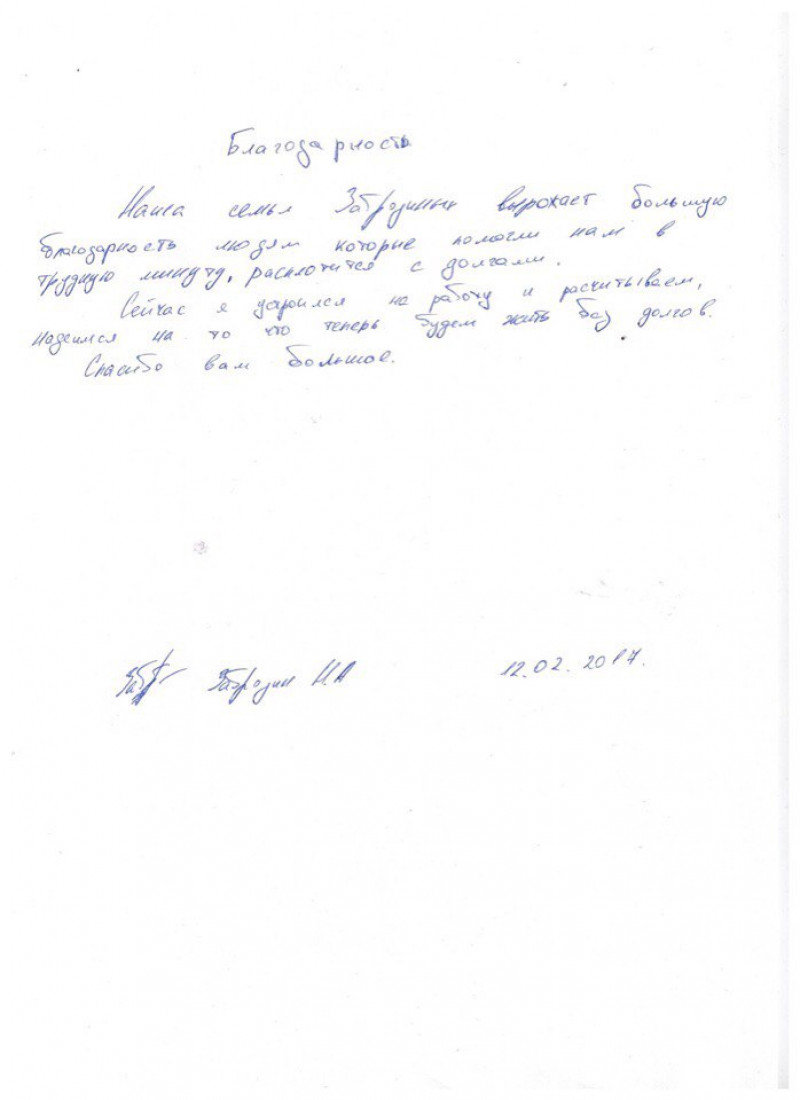 Благодарность
Наша семья Забродиных вырожает большую
благодарность людям которые помогли нам в
трудную минуту, расплотится с долгами.
Сейчас я устроился на работу и расчитываем,
надеимся на то что теперь будем жить без долгов.
Спасибо вам большое.
Забродин Н.А 12.02.2017.